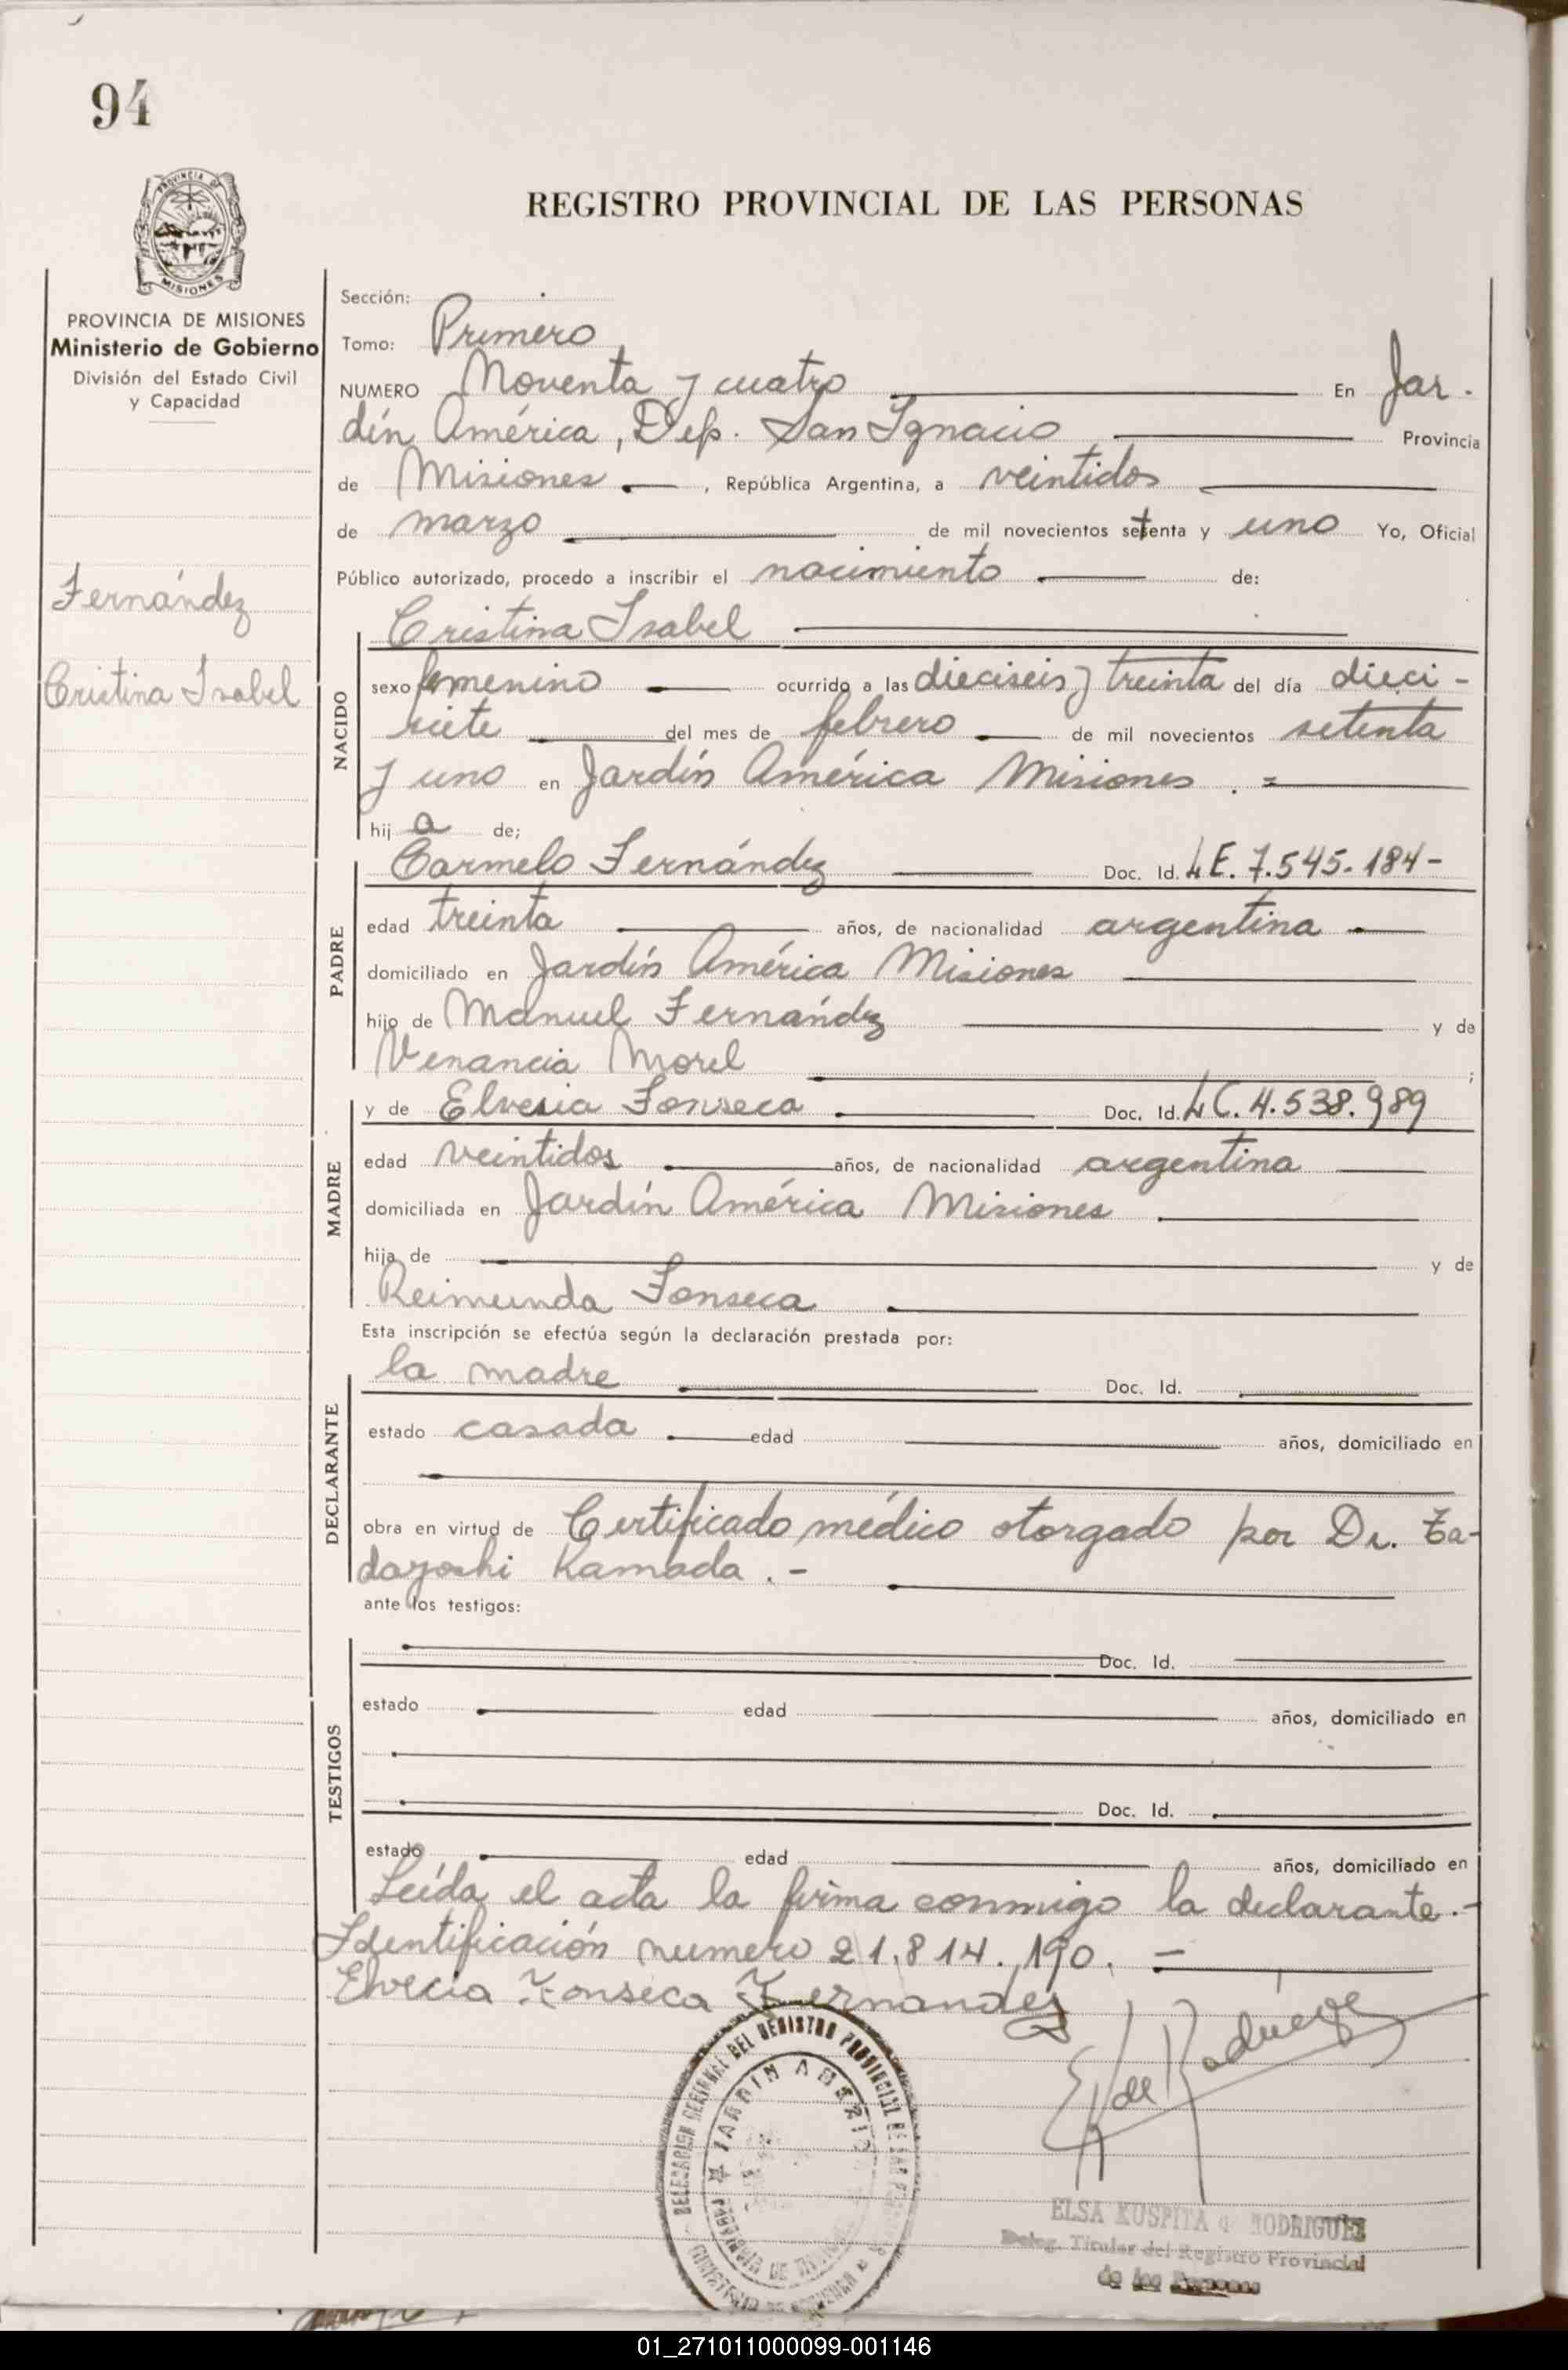 94
MISIONES
REGISTRO PROVINCIAL DE LAS PERSONAS
PROVINCIA DE MISIONES
Ministerio de Gobierno
División del Estado Civil
y Capacidad
Fernández
Cristina Isabel
Sección:
Tomo: Primero
NUMERO Noventa y cuatro En Jar-
dín América, Dep. San Ignacio Provincia
de Misiones, República Argentina, a veintidos
de marzo de mil novecientos setenta y uno Yo, Oficial
Público autorizado, procedo a inscribir el nacimiento de:
Cristina Isabel
NACIDO
sexo femenino ocurrido a las dieciseis y treinta del día dieci-
siete del mes de febrero de mil novecientos setenta
y uno en Jardín América Misiones . =
hij a de;
Carmelo Fernández Doc. Id. L E. 7.545.184-
PADRE
edad treinta años, de nacionalidad argentina
domiciliado en Jardín América Misiones
hijo de Manuel Fernández y de
Venancia Morel ;
MADRE
y de Elvecia Fonseca Doc. Id. L C. 4.538.989
edad veintidos años, de nacionalidad argentina
domiciliada en Jardín América Misiones
hija de y de
Reimunda Fonseca
Esta inscripción se efectúa según la declaración prestada por:
la madre Doc. Id.
DECLARANTE
estado casada edad años, domiciliado en
obra en virtud de Certificado médico otorgado por Dr. Ta-
dayoshi Kamada .-
ante los testigos:
Doc. Id.
TESTIGOS
estado edad años, domiciliado en
Doc. Id.
estado edad años, domiciliado en
Leída el acta la firma conmigo la declarante.-
Identificación numero 21.814.190. =
Elvecia Fonseca Fernandez
E de Rodríguez
DELEGACION REGIONAL DEL REGISTRO PROVINCIAL DE LAS
JARDIN AMERIC
ELSA KUSPITA de RODRIGUEZ
Deleg. Titular del Registro Provincial
de las Personas
01_271011000099-001146